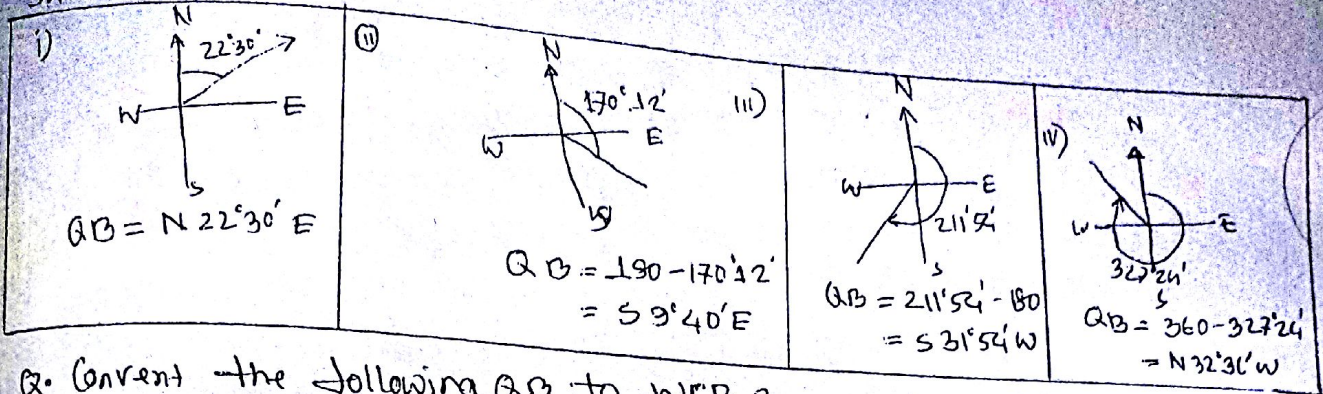 i)
N
22°30'
W
E
S
QB = N 22°30' E
(ii)
N
170°12'
W
E
S
QB = 180 - 170°12'
= S 9°40'E
iii)
N
W
E
211°54'
S
QB = 211°54' - 180
= S 31°54' W
iv)
N
W
E
327°24'
S
QB = 360 - 327°24'
= N 32°36' W
Q. Convent the following QB to WCB